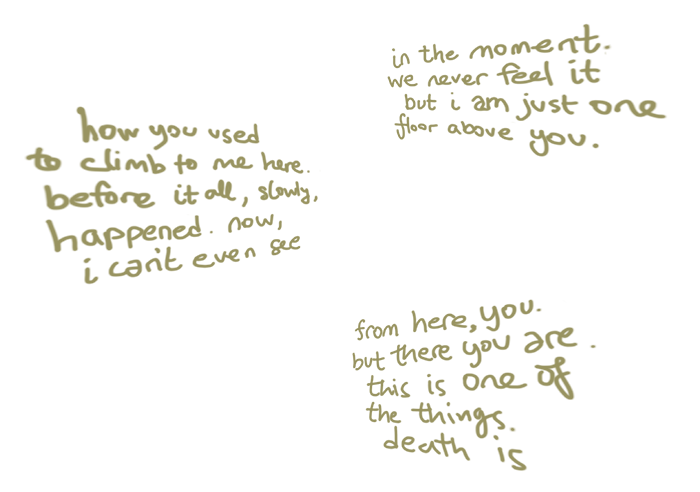 in the moment.
we never feel it
but i am just one
floor above you.
how you used
to climb to me here.
before it all, slowly,
happened. now,
i can't even see
from here, you.
but there you are.
this is one of
the things.
death is